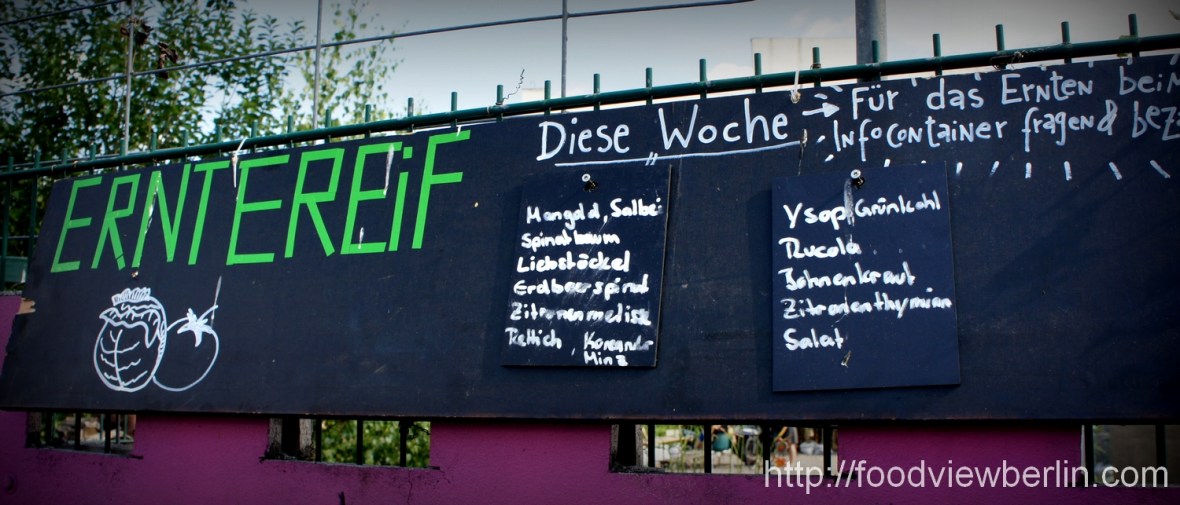 ERNTEREIF
Diese Woche
→ Für das Ernten beim
Infocontainer fragen & bez
Mangold, Salbei
Spinatbaum
Liebstöckel
Erdbeerspinat
Zitronenmelisse
Rettich, Koriander
Minz
Ysop, Grünkohl
Rucola
Bohnenkraut
Zitronenthymian
Salat
http://foodviewberlin.com